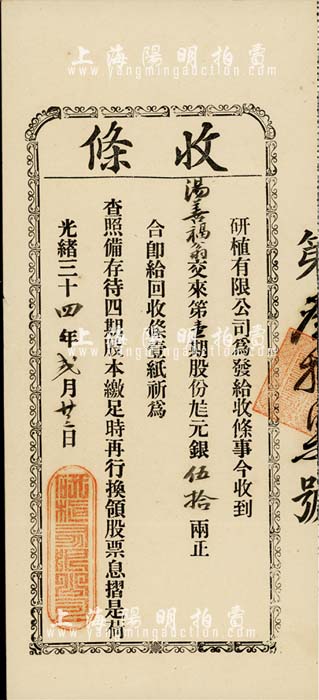 上海陽明拍賣
www.yangmingauction.com
收條
研植有限公司為發給收條事今收到
湯善禍翁交來第壹期股份尨元銀伍拾兩正
合卽給回收條壹紙祈為
查照備存待四期股本繳足時再行換領股票息摺是荷
光緒三十四年弍月廿三日
第
號
上海陽明拍賣
www.yangmingauction.com
上海陽明拍賣
www.yangmingauction.com